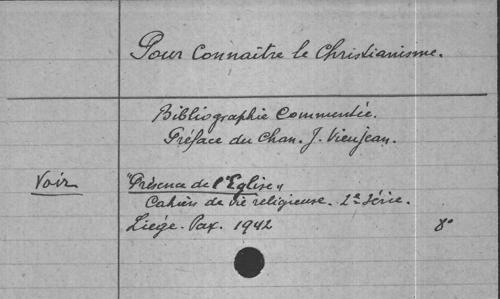 Pour connaître le Christianisme.
Bibliographie commentée.
Préface du Chan. J. Vieujean.
Voir
"Présence de l'Eglise"
Cahier de vie religieuse. 2e série.
Liége. Pax. 1942 8°